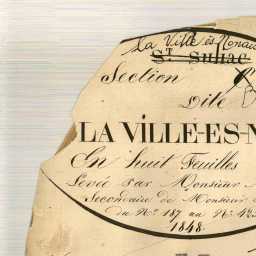 La Ville ès Nonais
St. Suliac
Section
Dite
LA VILLE-ES-N
En huit Feuilles
Levée Par Monsieur
Secondaire de Monsieur
du No. 187 au No. 423
1848.